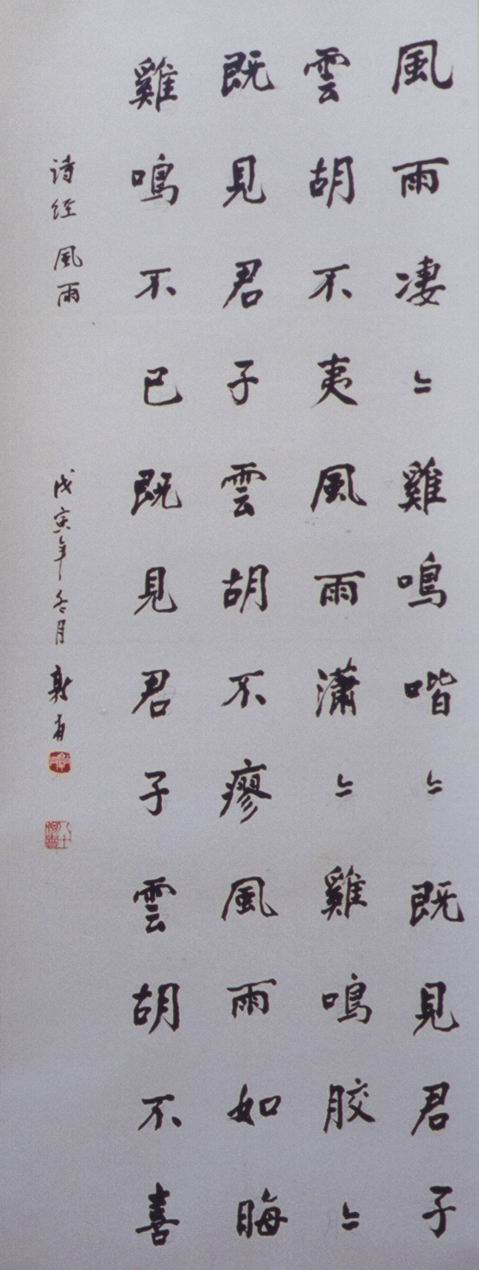 風雨凄〻雞鳴喈〻既見君子
雲胡不夷風雨潇〻雞鳴膠〻
既見君子雲胡不廖風雨如晦
雞鳴不已既見君子雲胡不喜
诗经 風雨
戊寅年冬月